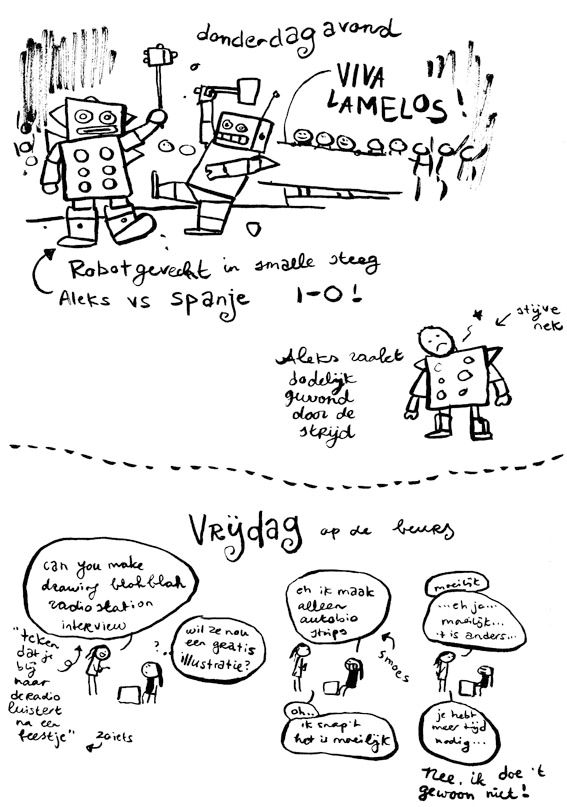 donderdagavond
VIVA
LAMELOS!
Robotgevecht in smalle steeg
Aleks vs spanje 1-0!
stijve
nek
Aleks raakt
dodelijk
gewond
door de
strijd
Vrijdag op de beurs
can you make
drawing blahblah
radiostation
interview
"teken
dat je
blij
naar
de radio
luistert
na een
feestje"
zoiets
?..
wil ze nou
een gratis
illustratie?
eh ik maak
alleen
autobio
strips
smoes
oh..
ik snap 't
het is moeilijk
moeilijk
...eh ja...
moeilijk...
't is anders...
je hebt
meer tijd
nodig...
Nee, ik doe 't
gewoon niet!